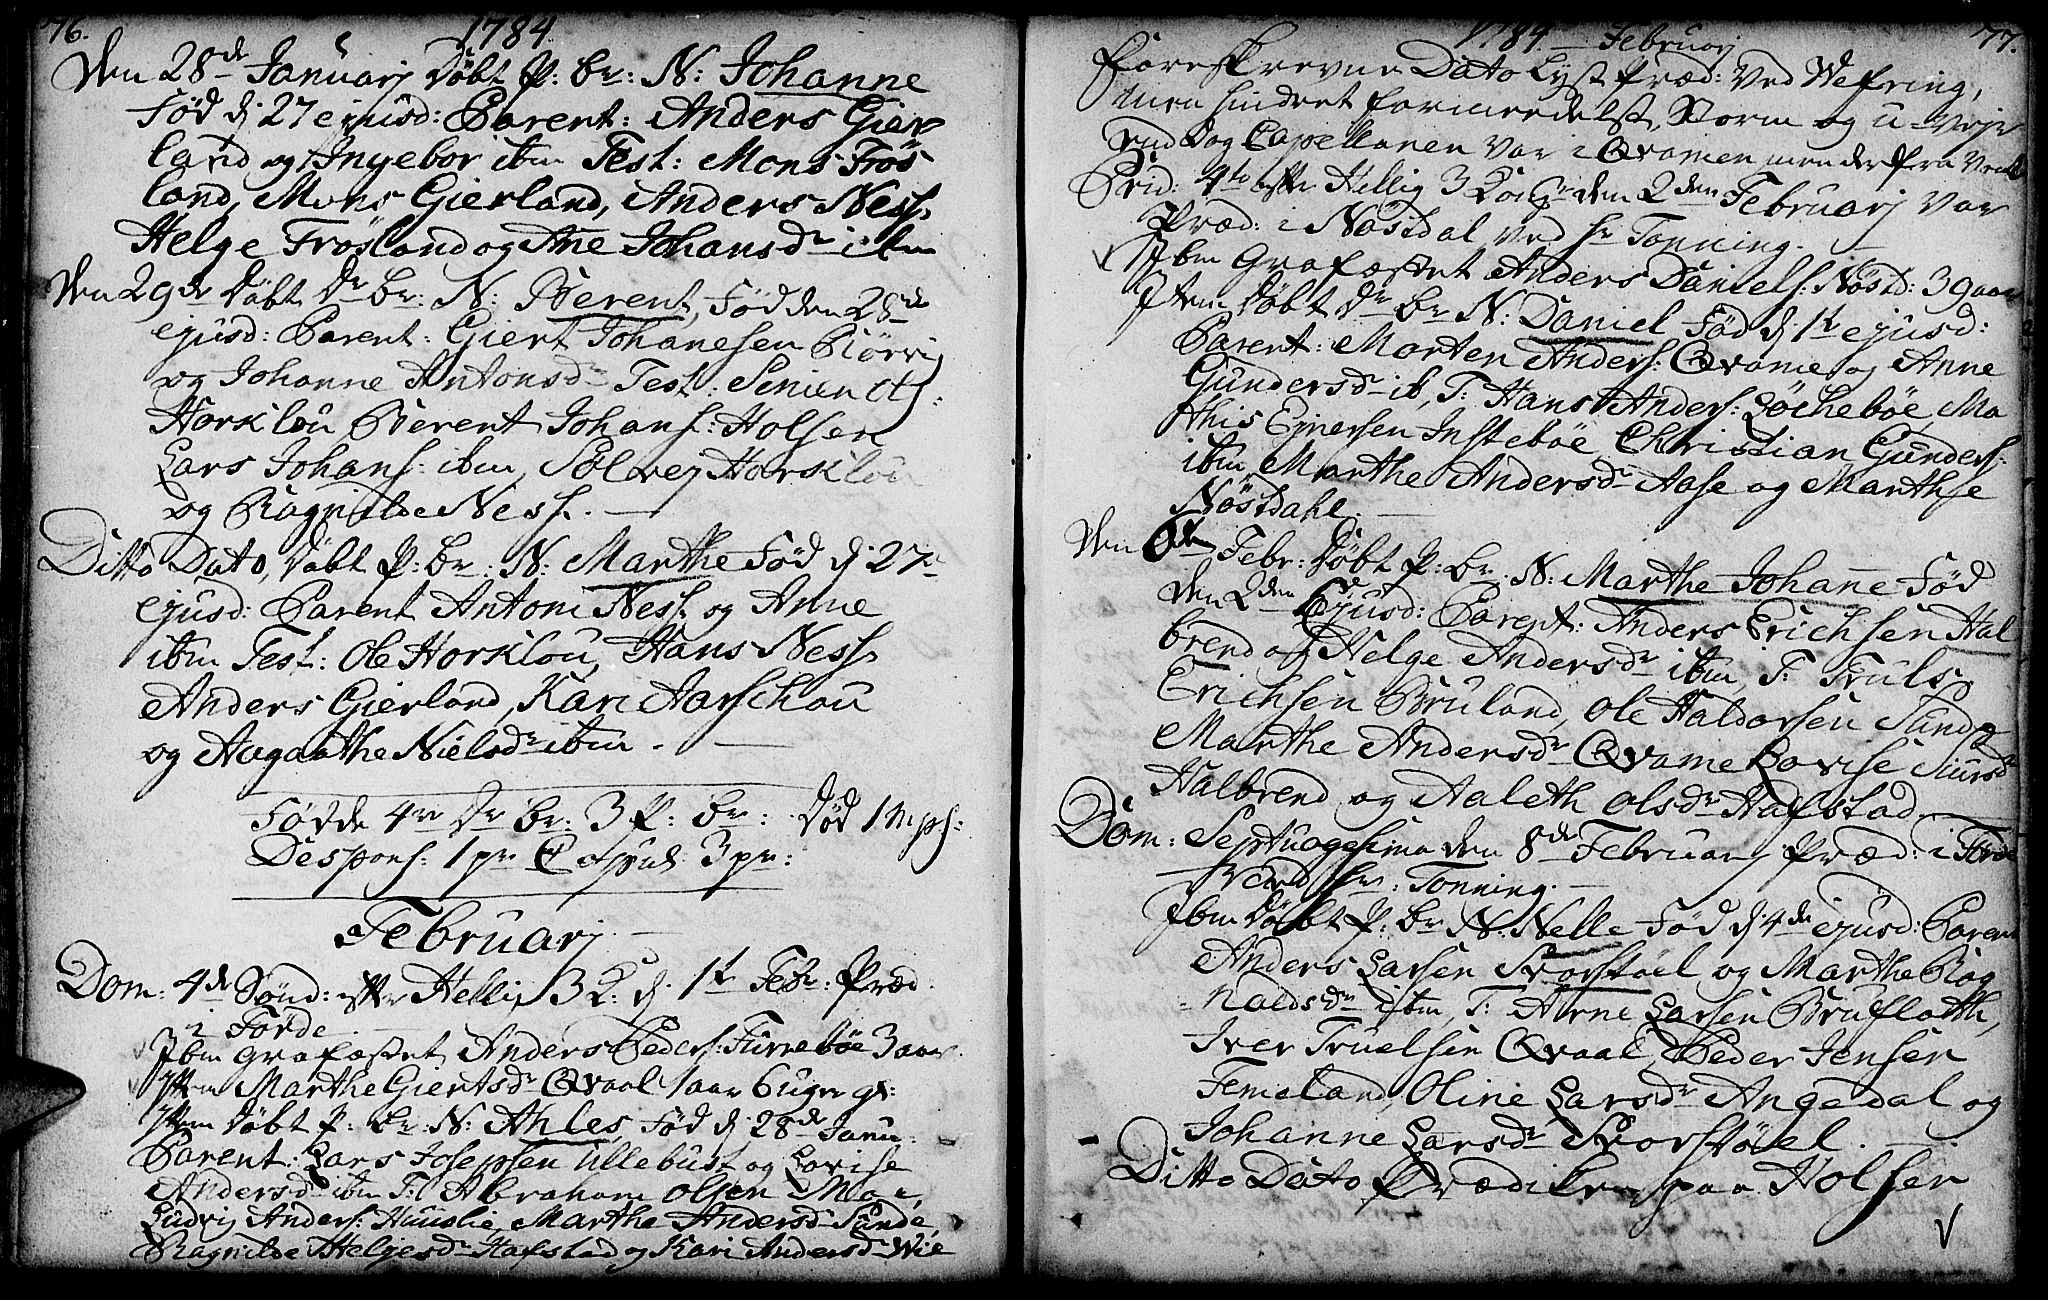 76. 1784
Den 28de Januarj Döbt P: br: N: Johanne
Fød d: 27 ejusd: Parent: Anders Gier
land og Ingebor ibm Test: Mons Frøs
land, Mons Gierland, Anders Ness
Helge Frøsland og Ane Johansdr ibm
Den 29de Döbt Dr br: N: Berent, Fød den 28de
ejusd: Parent: Giert Johanesen Rörvig
og Johanne Antonsdr Test:
Horklou Berent Johans: Holsen
Lars Johans: ibm, Solvej Horklou
og Ragnilde Ness. —
Ditto Dato, Döbt P: br: N: Marthe Fød d: 27de
ejusd: Parent Antoni Ness og Anne
ibm Test: Ole Horklou, Hans Ness
Anders Gierland, Kari Aarschou
og Aagaathe Nielsdr ibm. —
Fødde 4re Dr br: 3 P: br: Död 1 Mpsh:
Despons: 1 pr Copul: 3 pr:
Februarj. —
Dom: 4de Sönd: effter Hellig 3 K: d: 1t Febr: Præd:
i Förde —
Ibm Grafæstet Anders Peders: Furrebøe 3 aar
Item Marthe Giertsdr Qvaal 1 aar 6 uger gl:
Item Döbt P: br N: Ahles Fød d: 28de Janu:
Parent: Lars Josepsen Ullebust og Lovise
Andersdr ibm T: Abraham Olsen Moe,
Ludvig Anders: Huuslie, Marthe Andersdr Sunde,
Ragnilde Helgesdr Hafstad og Kari Andersdr Wie
1784 — Februarj 77.
foreskrevne Dato Lyst Præd: ved Wefring,
men hindret formedelst Storm og u-Vejr
og Capellanen var i Qvamen
Frid: 4to effter Hellig 3 Kong: den 2den Februarj var
Præd: i Nøstdal ved Hr Tonning. —
Ibm Grafæstet Anders Daniels: Nøstd: 39 aar
Item Döbt Dr br N: Daniel Fød d: 1t ejusd:
Parent: Morten Anders: Qvame og Anne
Gundersdr ib, T: Hans Anders: Löchebøe, Ma
this Ejnersen Instebøe, Christian Gunders:
ibm, Marthe Andersdr Aase og Marthe
Nøstdahl. —
Den 6den Febr: Döbt P: br: N: Marthe Johane Fød
den 2den Ejusd: Parent: Anders Erichsen Hal
brend og Helge Andersdr ibm, T: Truls
Erichsen Bruland, Ole Haldorsen Sunde
Marthe Andersdr Qvame Lovise Siursdr
Halbrend og Aaleth Olsdr Hafstad. —
Dom: Septuagesima den 8de Februarj Præd: i Förde
ved Hr: Tonning. —
Ibm Döbt P: br N: Nelle Fød d: 4de ejusd: Parent
Anders Larsen Svorstøel og Marthe Rag
naldsdr ibm, T: Arne Larsen Brufloth,
Iver Truelsen Qvaal, Peder Jensen
Femeland, Oline Larsdr Angedal og
Johanne Larsdr Svorstøel. —
Ditto Dato Prædiken paa Holsen